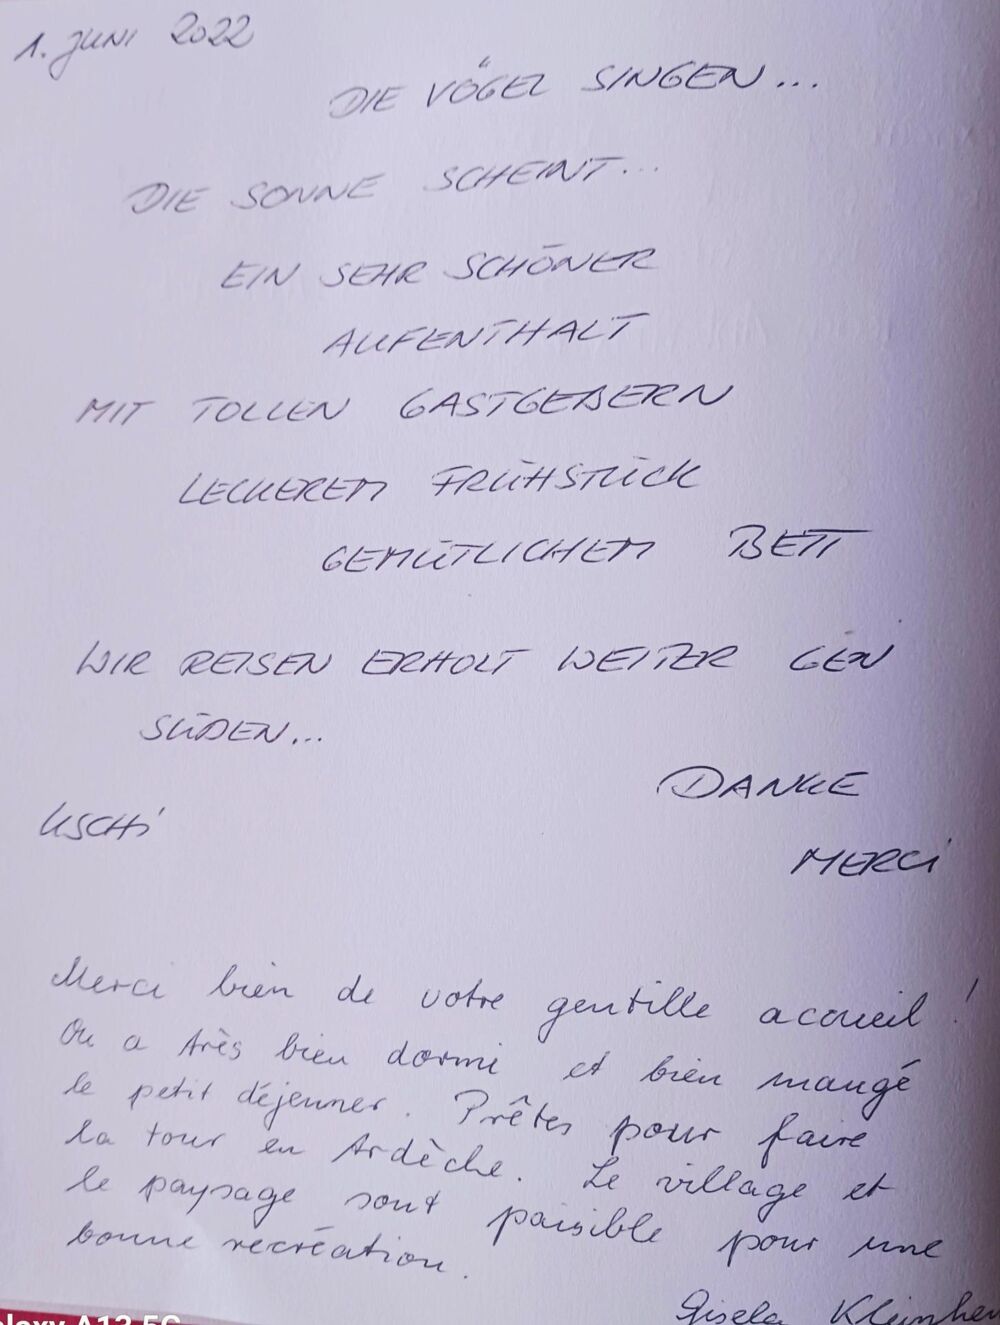 1. JUNI 2022
DIE VÖGEL SINGEN...
DIE SONNE SCHEINT...
EIN SEHR SCHÖNER
AUFENTHALT
MIT TOLLEN GASTGEBERN
LECKEREM FRÜHSTÜCK
GEMÜTLICHEM BETT
WIR REISEN ERHOLT WEITER GEN
SÜDEN...
DANKE
USCHi
MERCi
Merci bien de votre gentille accueil !
On a très bien dormi et bien mangé
le petit déjeuner. Prêtes pour faire
la tour en Ardèche. Le village et
le paysage sont paisible pour une
bonne recréation.
Gisela